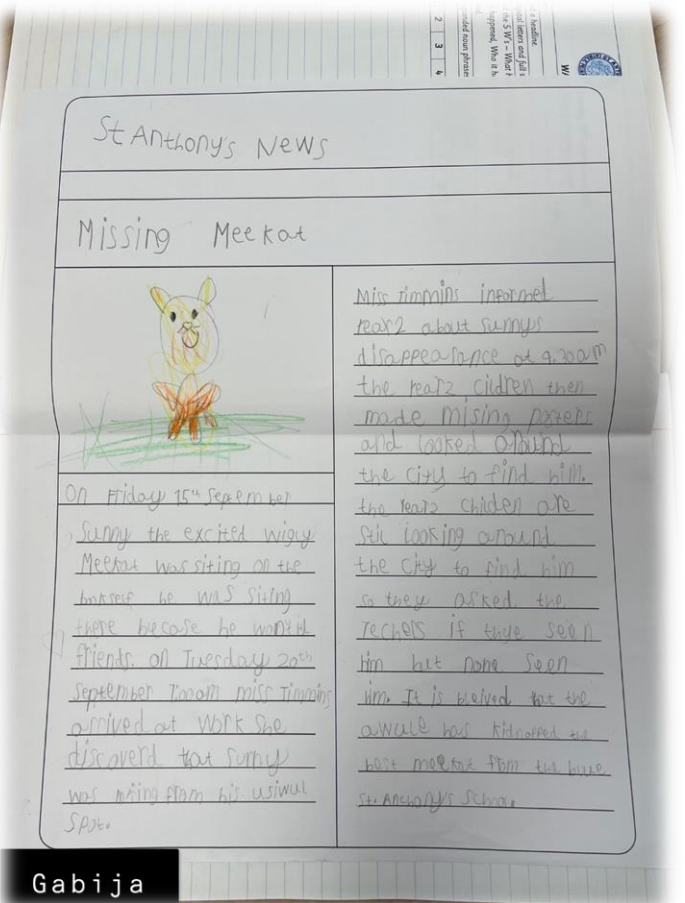 d a headline.
ital letters and full s
f the 5 W's – What h
happened, Who it h
nded noun phrases
2 3 4
W
St Anthony's News
Missing Meekat
On Friday 15th September
Sunny the excited wigly
Meekat was siting on the
he was siting
there becase he wonted
friends. on Tuesday 20th
September miss Timmins
arrived at work She
discoverd that sunny
was from his usiwul
spot.
Miss Timmins informet
year2 about sunnys
disappearance at 9.30am
the year2 cildren then
made mising posters
and looked around
the city to find him.
the year2 children are
stil looking around
the city to find him
so they asked the
techers if thye seen
him but none seen
him. It is bleived that the
awule has kidnapped the
best meekat from the
St. Anthony's School.
Gabija